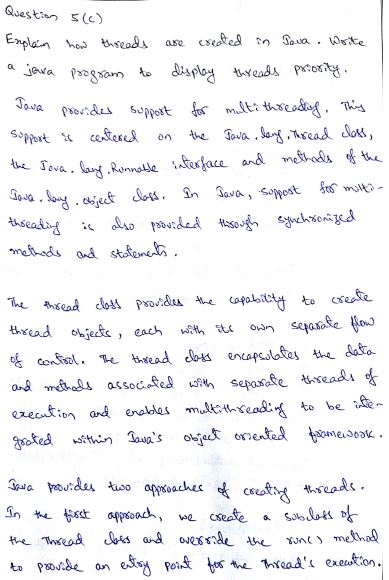 Question 5(c)
Explain how threads are created in Java. Write
a java program to display threads priority.
Java provides support for multithreading. This
support is centered on the Java.lang.Thread class,
the Java.lang.Runnable interface and methods of the
Java.lang.object class. In Java, support for multi-
threading is also provided through synchronized
methods and statements.
The thread class provides the capability to create
thread objects, each with its own separate flow
of control. The thread class encapsulates the data
and methods associated with separate threads of
execution and enables multithreading to be inte-
grated within Java's object oriented framework.
Java provides two approaches of creating threads.
In the first approach, we create a subclass of
the Thread class and override the run() method
to provide an entry point for the Thread's execution.